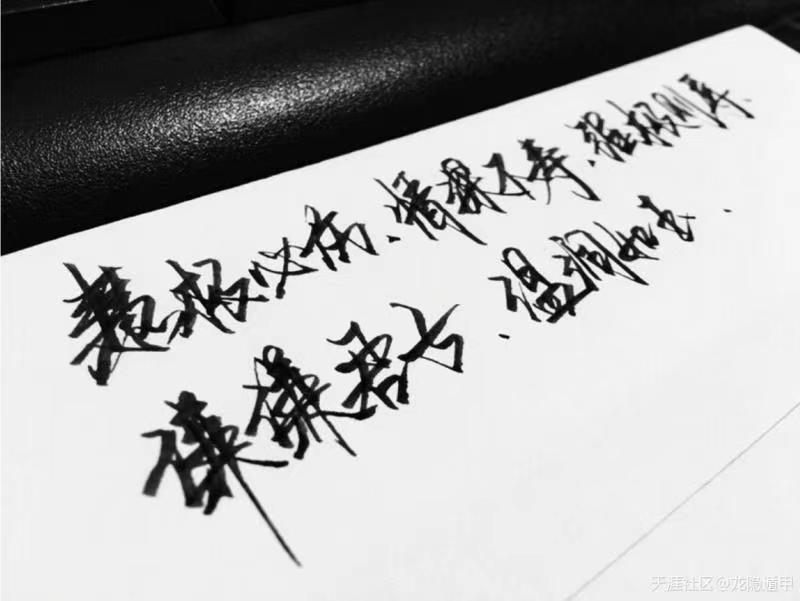 慧极必伤、情深不寿、强极则辱、
谦谦君子、温润如玉、
天涯社区@龙隐遁甲